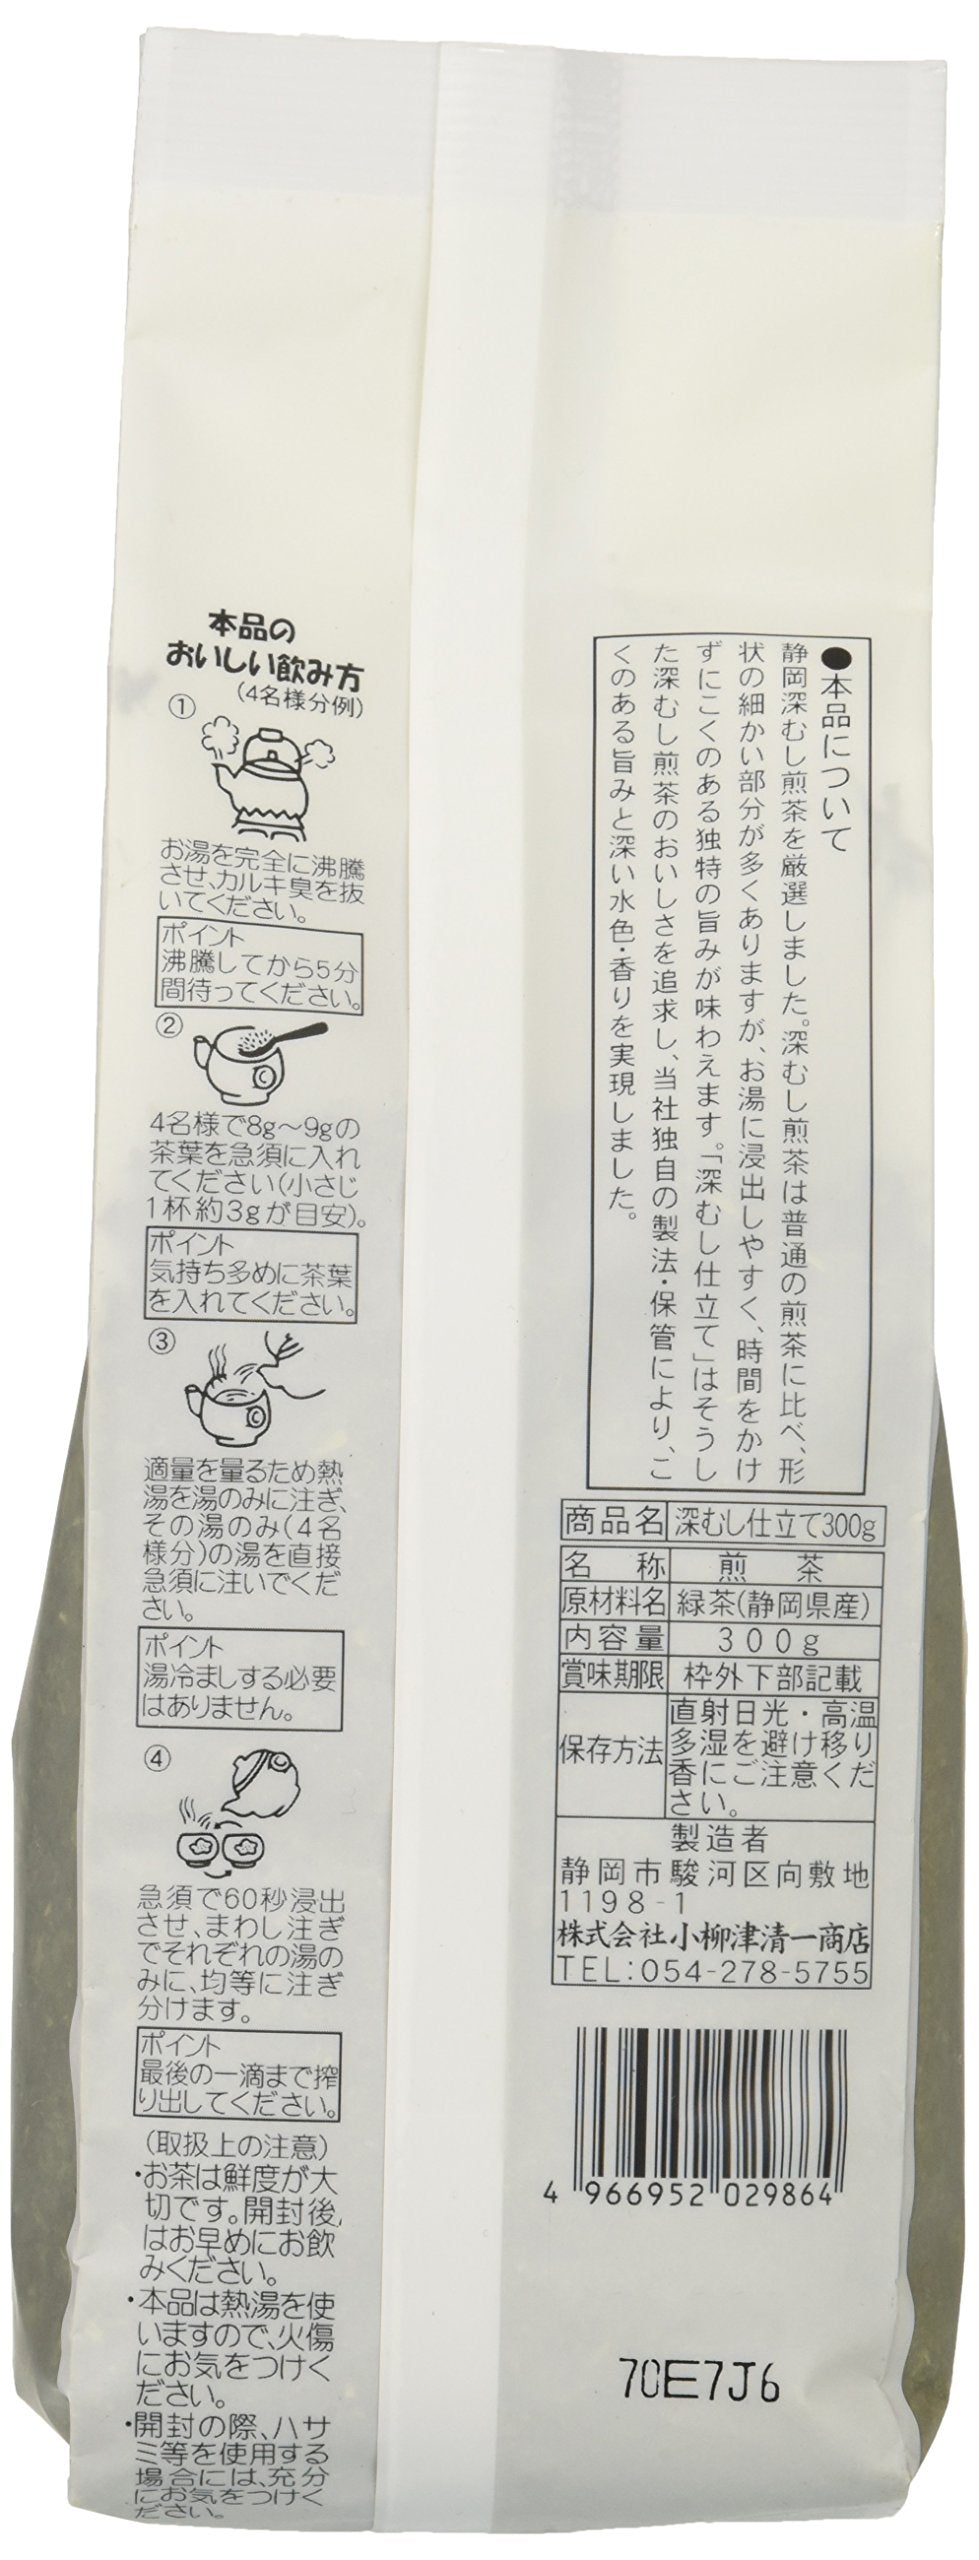 本品の
おいしい飲み方
(4名様分例)
①
お湯を完全に沸騰
させ、カルキ臭を抜
いてください。
ポイント
沸騰してから5分
間待ってください。
②
4名様で8g〜9gの
茶葉を急須に入れ
てください(小さじ
1杯約3gが目安)。
ポイント
気持ち多めに茶葉
を入れてください。
③
適量を量るため熱
湯を湯のみに注ぎ、
その湯のみ(4名
様分)の湯を直接
急須に注いでくだ
さい。
ポイント
湯冷ましする必要
はありません。
④
急須で60秒浸出
させ、まわし注ぎ
でそれぞれの湯の
みに、均等に注ぎ
分けます。
ポイント
最後の一滴まで搾
り出してください。
(取扱上の注意)
・お茶は鮮度が大
切です。開封後、
はお早めにお飲
みください。
・本品は熱湯を使
いますので、火傷
にお気をつけく
ださい。
・開封の際、ハサ
ミ等を使用する
場合には、充分
にお気をつけく
ださい。
●本品について
静岡深むし煎茶を厳選しました。深むし煎茶は普通の煎茶に比べ、形
状の細かい部分が多くありますが、お湯に浸出しやすく、時間をかけ
ずにこくのある独特の旨みが味わえます。「深むし仕立て」はそうし
た深むし煎茶のおいしさを追求し、当社独自の製法・保管により、こ
くのある旨みと深い水色・香りを実現しました。
商品名 深むし仕立て300g
名 称 煎 茶
原材料名 緑茶(静岡県産)
内容量 300g
賞味期限 枠外下部記載
保存方法 直射日光・高温
多湿を避け移り
香にご注意くだ
さい。
製造者
静岡市駿河区向敷地
1198-1
株式会社小柳津清一商店
TEL:054-278-5755
4 966952 029864
70E7J6